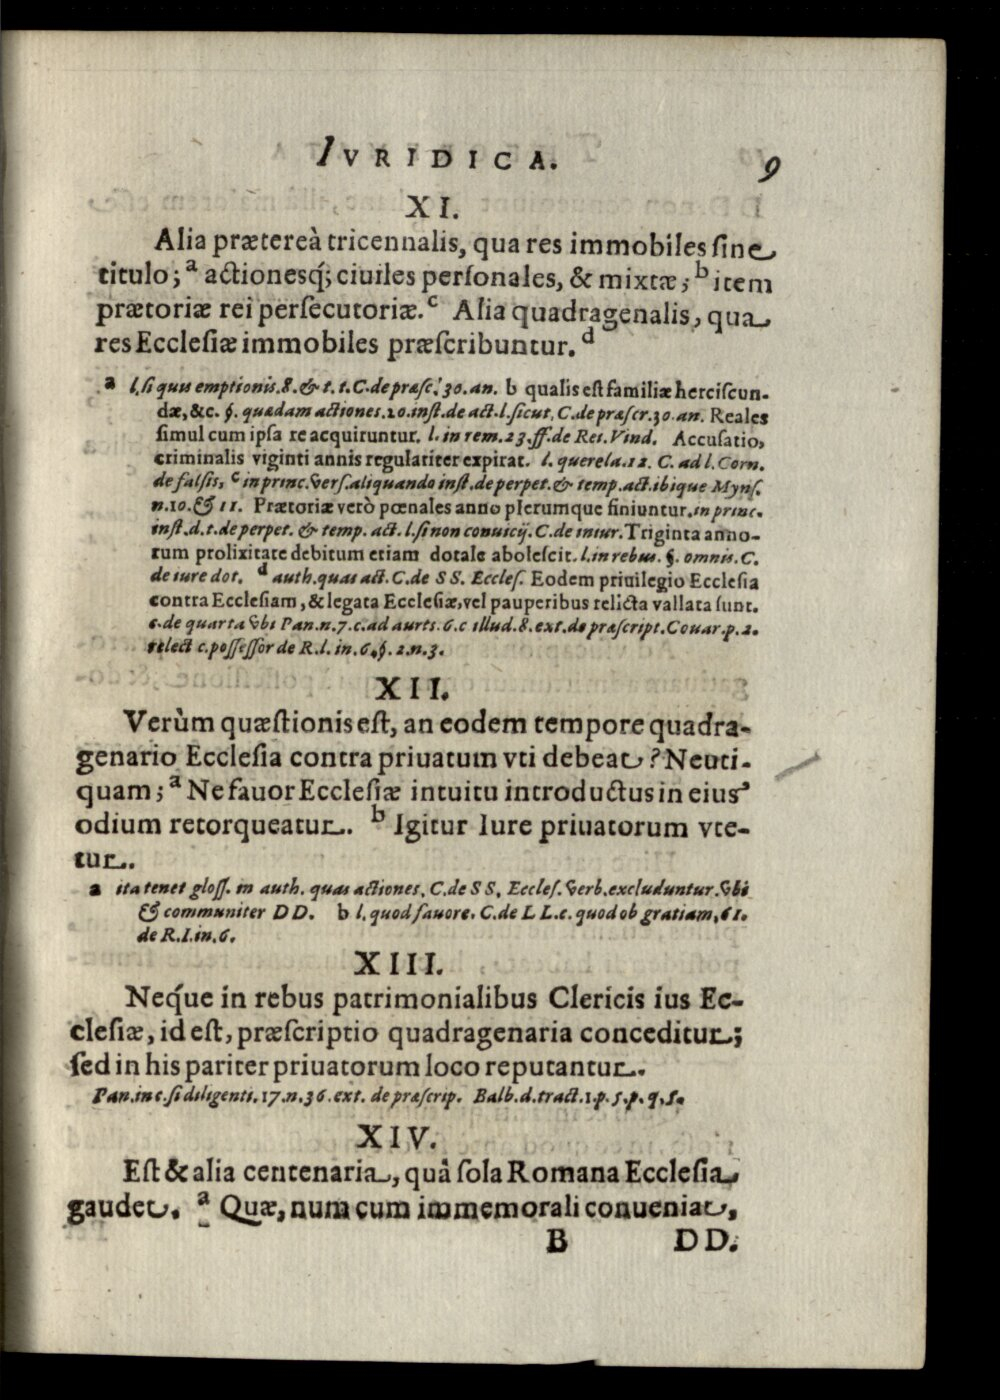 IVRIDICA. 9
XI.
Alia prætereà tricennalis, qua res immobiles sine
titulo; a actionesq́; ciuiles personales, & mixtæ; b item
prætoriæ rei persecutoriæ. c Alia quadragenalis, qua
res Ecclesiæ immobiles præscribuntur. d
a l. si quis emptionis. 8. & t. t. C. de præsc. 30. an. b qualis est familiæ herciscun-
dæ, &c. §. quædam actiones. 20. inst. de act. l. sicut, C. de præscr. 30. an. Reales
simul cum ipsa re acquiruntur. l. in rem. 23. ff. de Rei. Vind. Accusatio,
criminalis viginti annis regulariter expirat. l. querela. 12. C. ad l. Corn.
de falsis, c in princ. vers. aliquando inst. de perpet. & temp. act. ibique Myns.
n. 10. & 11. Prætoriæ verò pœnales anno plerumque finiuntur. in princ.
inst. d. t. de perpet. & temp. act. l. si non conuicij. C. de iniur. Triginta anno-
rum prolixitate debitum etiam dotale abolescit. l. in rebus. §. omnis. C.
de iure dot. d auth. quas act. C. de SS. Eccles. Eodem priuilegio Ecclesia
contra Ecclesiam, & legata Ecclesiæ, vel pauperibus relicta vallata sunt.
c. de quarta vbi Pan. n. 7. c. ad aurts. 6. c illud. 8. ext. de præscript. Couar. p. 2.
relect c. possessor de R. l. in. 6. §. 2. n. 3.
XII.
Verùm quæstionis est, an eodem tempore quadra-
genario Ecclesia contra priuatum vti debeat? Neuti-
quam; a Ne fauor Ecclesiæ intuitu introductus in eius
odium retorqueatur. b Igitur Iure priuatorum vte-
tur.
a ita tenet gloss. in auth. quas actiones, C. de SS. Eccles. verb. excluduntur. vbi
& communiter DD. b l. quod fauore. C. de LL. c. quod ob gratiam. 61.
de R. I. in. 6.
XIII.
Neq́ue in rebus patrimonialibus Clericis ius Ec-
clesiæ, id est, præscriptio quadragenaria conceditur;
sed in his pariter priuatorum loco reputantur.
Pan. in c. si diligenti. 17. n. 36. ext. de præscrip. Balb. d. tract. 1. p. 5. p. q. 5.
XIV.
Est & alia centenaria, quâ sola Romana Ecclesia
gaudet. a Quæ, num cum immemorali conueniat,
B DD.